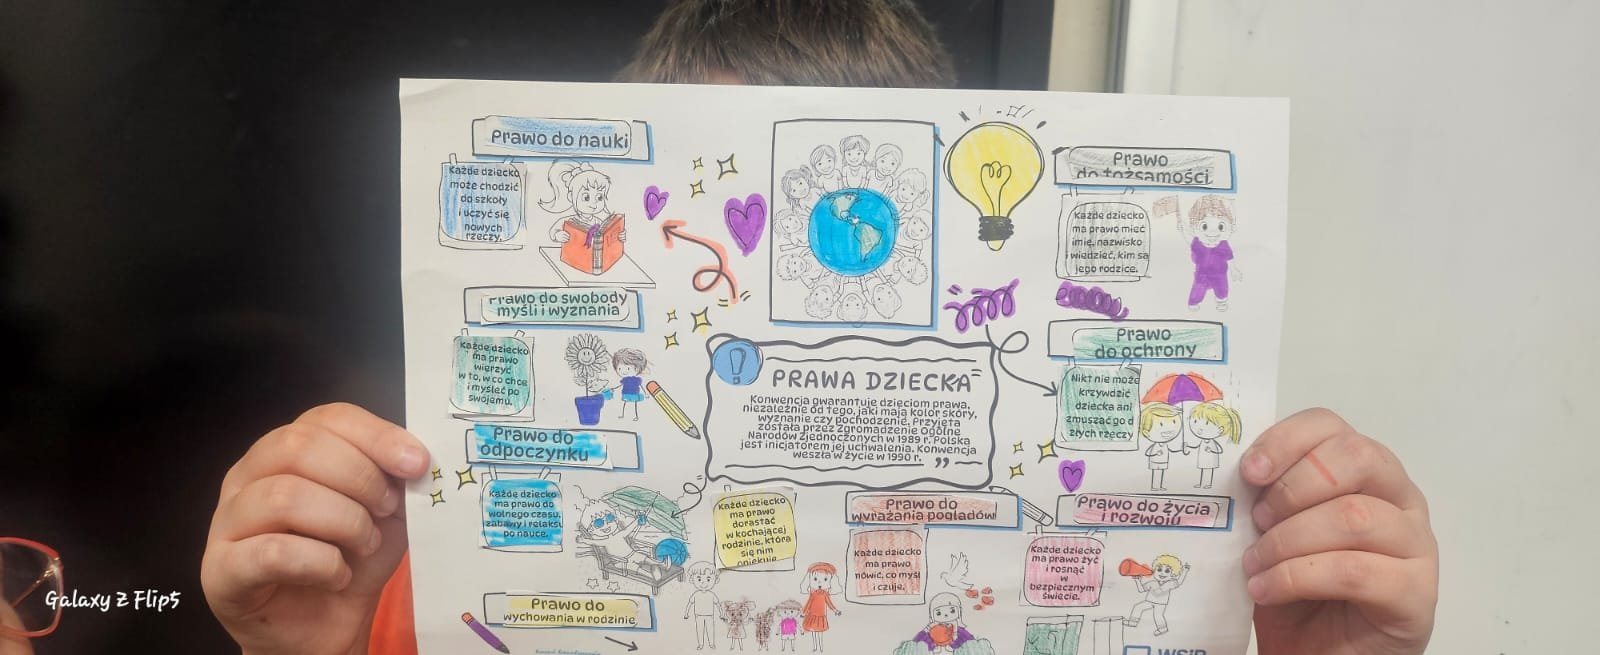 Prawo do nauki
Każde dziecko
może chodzić
do szkoły
i uczyć się
nowych
rzeczy.
Prawo do swobody
myśli i wyznania
Każde dziecko
ma prawo
wierzyć
w to, w co chce
i myśleć po
swojemu.
Prawo do
odpoczynku
Każde dziecko
ma prawo do
wolnego czasu,
zabawy i relaksu
po nauce.
Prawo do
wychowania w rodzinie
Każde dziecko
ma prawo
dorastać
w kochającej
rodzinie, która
się nim
opiekuje
PRAWA DZIECKA
Konwencja gwarantuje dzieciom prawa,
niezależnie od tego, jaki mają kolor skóry,
wyznanie czy pochodzenie. Przyjęta
została przez Zgromadzenie Ogólne
Narodów Zjednoczonych w 1989 r. Polska
jest inicjatorem jej uchwalenia. Konwencja
weszła w życie w 1990 r.
Prawo do
wyrażania poglądów
Każde dziecko
ma prawo
mówić, co myśli
i czuje.
Prawo
do tożsamości
Każde dziecko
ma prawo mieć
imię, nazwisko
i wiedzieć, kim są
jego rodzice.
Prawo
do ochrony
Nikt nie może
krzywdzić
dziecka ani
zmuszać go d
złych rzeczy
Prawo do życia
i rozwoju
Każde dziecko
ma prawo żyć
i rosnąć
w
bezpiecznym
świecie.
WSiP
Galaxy Z Flip5